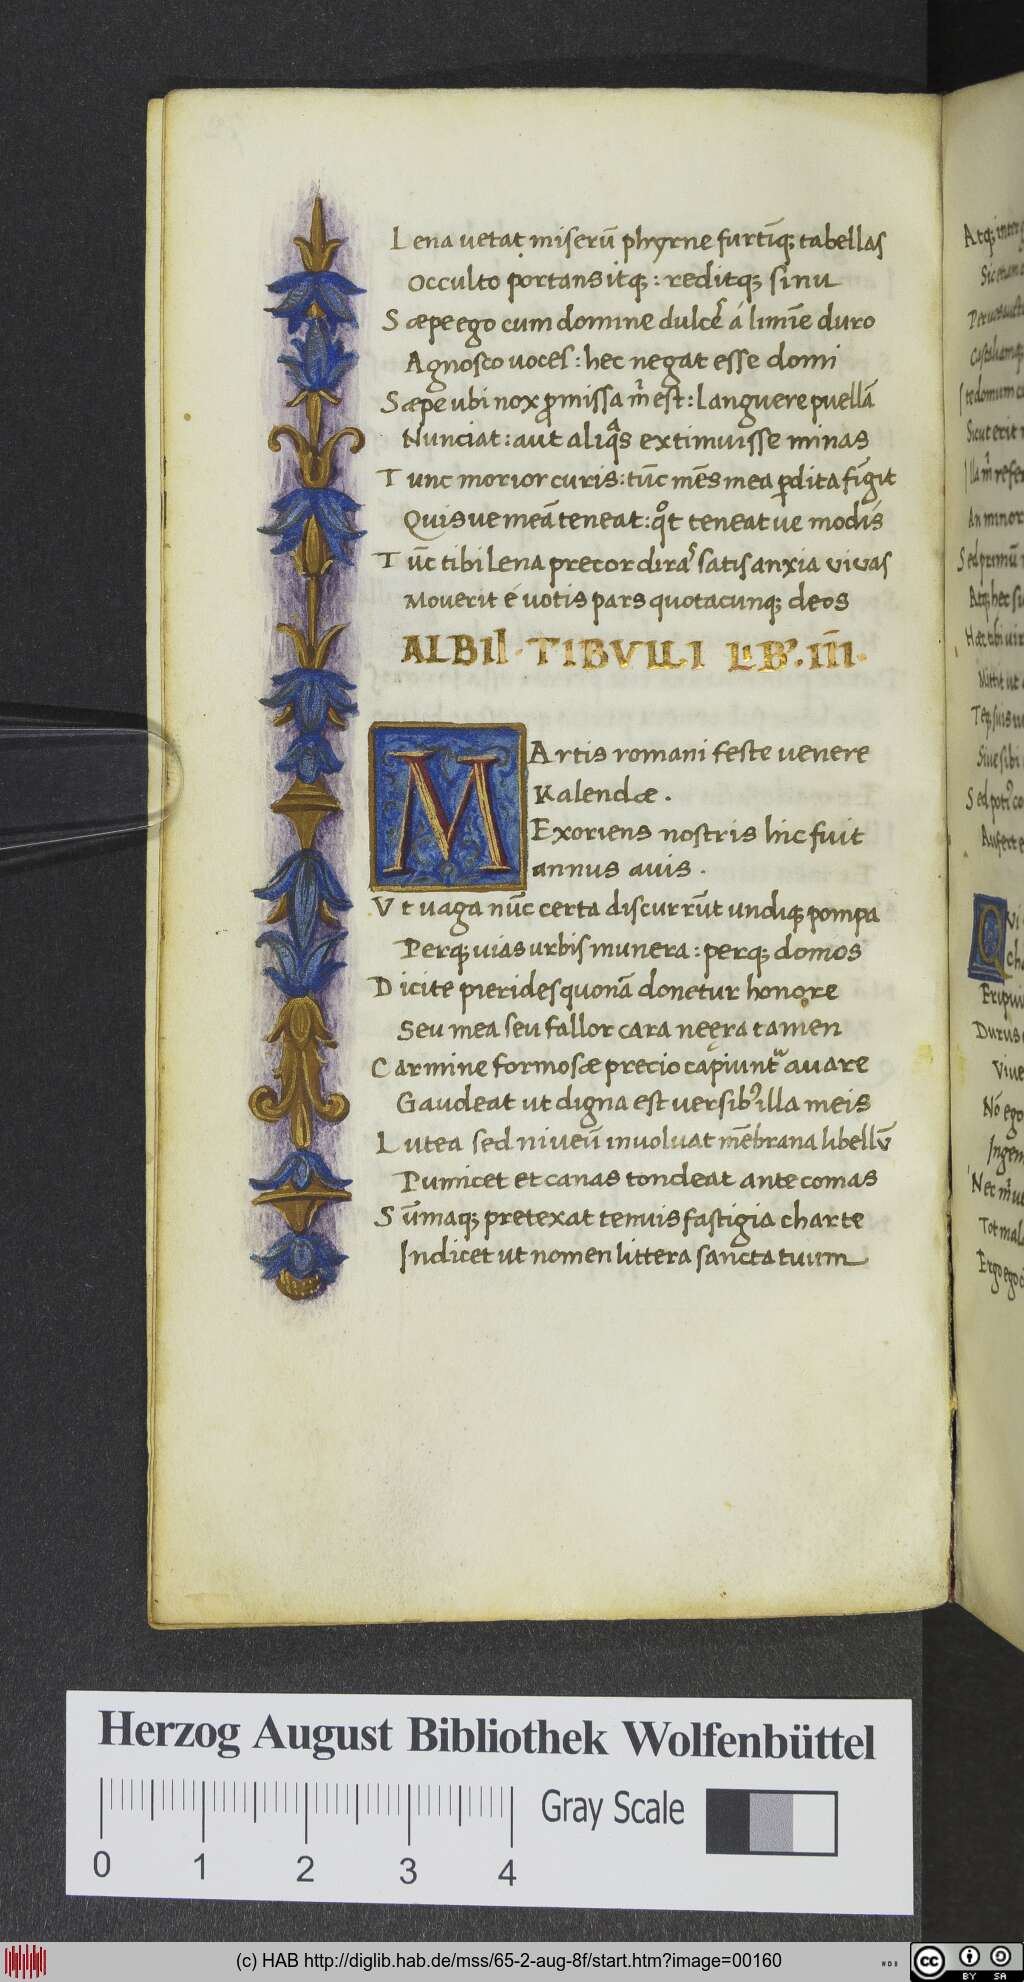 Lena uetat miserū phyrne furtīq; tabellas
Occulto portans itq;: reditq; sinu
Sæpe ego cum domine dulcēs á limīe duro
Agnosco uoces: hec negat esse domi
Sæpe ubi nox ꝓmissa m̄ est: languere puellā
Nunciat: aut aliqͣs extimuisse minas
Tunc morior curis: tūc mēs mea ꝑdita fīgit
Quisue meā teneat: qͦt teneat ue modis
Tūc tibi lena precor diras satis anxia vivas
Moverit é uotis pars quotacunq; deos
ALBII · TIBVLLI LIB'. III ·
MArtis romani feste venere
Kalendæ .
Exoriens nostris hic fuit
annus avis .
Vt uaga nūc certa discurrūt undiq; pompa
Perq; uias urbis munera: perq; domos
Dicite pierides quonā donetur honore
Seu mea seu fallor cara neęra tamen
Carmine formosæ precio capiuntᷣ auare
Gaudeat ut digna est versib9 illa meis
Lutea sed niveū involuat mēbrana libellū
Pumicet et canas tondeat ante comas
Sūmaq; pretexat tenuis fastigia charte
Indicet ut nomen littera sancta tuum
Herzog August Bibliothek Wolfenbüttel
Gray Scale
0 1 2 3 4
(c) HAB http://diglib.hab.de/mss/65-2-aug-8f/start.htm?image=00160
cc BY SA